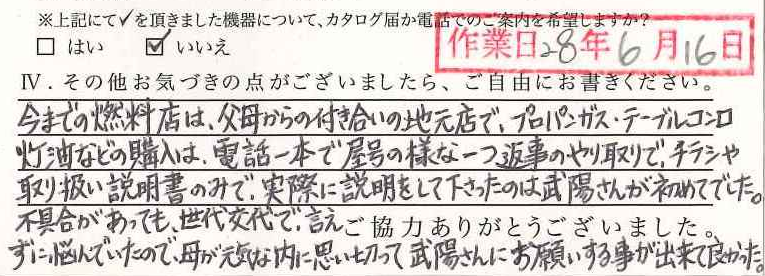 ※上記にて✓を頂きました機器について、カタログ届か電話でのご案内を希望しますか?
☐ はい ☑ いいえ
作業日28年6月16日
Ⅳ.その他お気づきの点がございましたら、ご自由にお書きください。
今までの燃料店は、父母からの付き合いの地元店で、プロパンガス・テーブルコンロ
灯油などの購入は、電話一本で屋号の様な一つ返事のやり取りで、チラシや
取り扱い説明書のみで、実際に説明をして下さったのは武陽さんが初めてでした。
不具合があっても、世代交代で、言え
ご協力ありがとうございました。
ずに悩んでいたので、母が元気な内に思い切って武陽さんにお願いする事が出来て良かった。